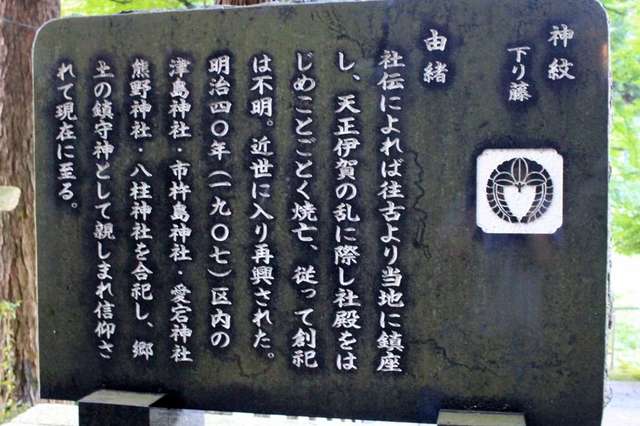 神紋
下り藤
由緒
社伝によれば往古より当地に鎮座
し、天正伊賀の乱に際し社殿をは
じめことごとく焼亡、従って創祀
は不明。近世に入り再興された。
明治四〇年(一九〇七)区内の
津島神社・市杵島神社・愛宕神社
熊野神社・八柱神社を合祀し、郷
土の鎮守神として親しまれ信仰さ
れて現在に至る。